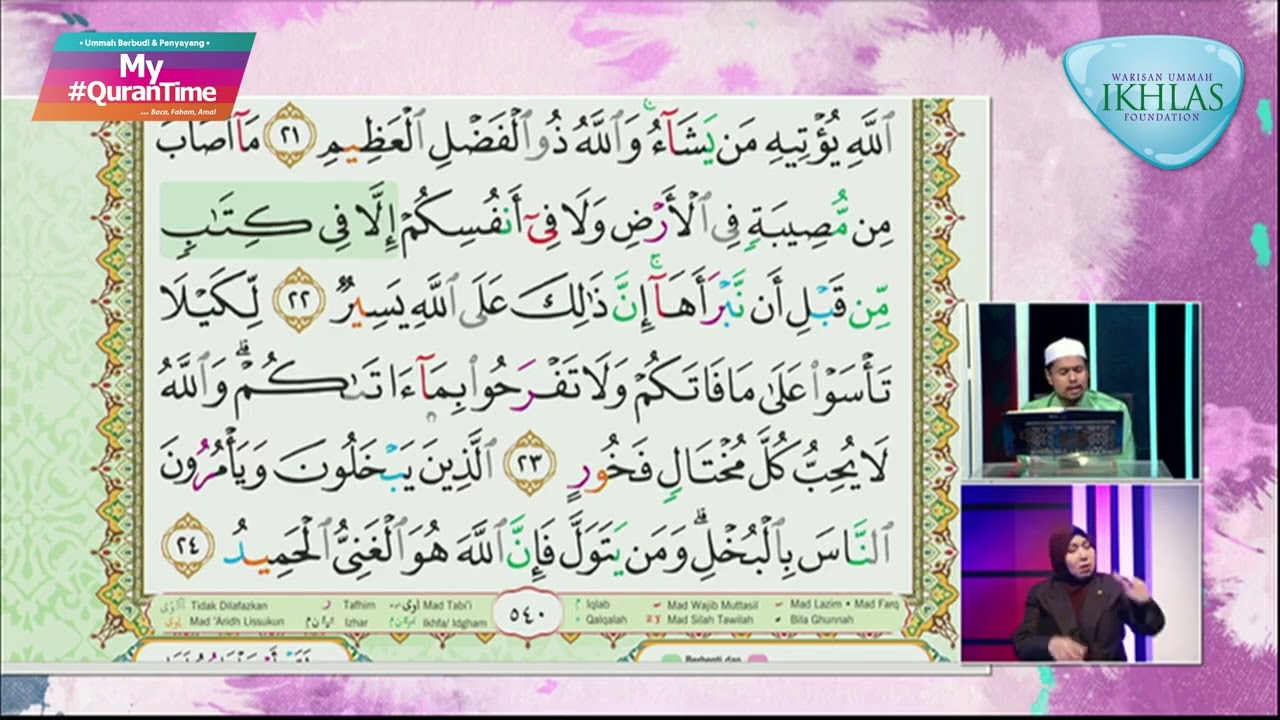 • Ummah Berbudi & Penyayang •
My
#QuranTime
... Baca, Faham, Amal
WARISAN UMMAH
IKHLAS
FOUNDATION
ٱللَّهِ يُؤْتِيهِ مَن يَشَآءُ ۚ وَٱللَّهُ ذُو ٱلْفَضْلِ ٱلْعَظِيمِ ٢١ مَآ أَصَابَ
مِن مُّصِيبَةٍ فِى ٱلْأَرْضِ وَلَا فِىٓ أَنفُسِكُمْ إِلَّا فِى كِتَٰبٍ
مِّن قَبْلِ أَن نَّبْرَأَهَآ ۚ إِنَّ ذَٰلِكَ عَلَى ٱللَّهِ يَسِيرٌ ٢٢ لِّكَيْلَا
تَأْسَوْا۟ عَلَىٰ مَا فَاتَكُمْ وَلَا تَفْرَحُوا۟ بِمَآ ءَاتَىٰكُمْ ۗ وَٱللَّهُ
لَا يُحِبُّ كُلَّ مُخْتَالٍ فَخُورٍ ٢٣ ٱلَّذِينَ يَبْخَلُونَ وَيَأْمُرُونَ
ٱلنَّاسَ بِٱلْبُخْلِ ۗ وَمَن يَتَوَلَّ فَإِنَّ ٱللَّهَ هُوَ ٱلْغَنِىُّ ٱلْحَمِيدُ ٢٤
Tidak Dilafazkan Tafhim Mad Tabi'i ٥٤٠ Iqlab Mad Wajib Muttasil Mad Lazim • Mad Farq
Mad 'Aridh Lissukun Izhar Ikhfa/ Idgham Qalqalah Mad Silah Tawilah Bila Ghunnah
Berhenti dan